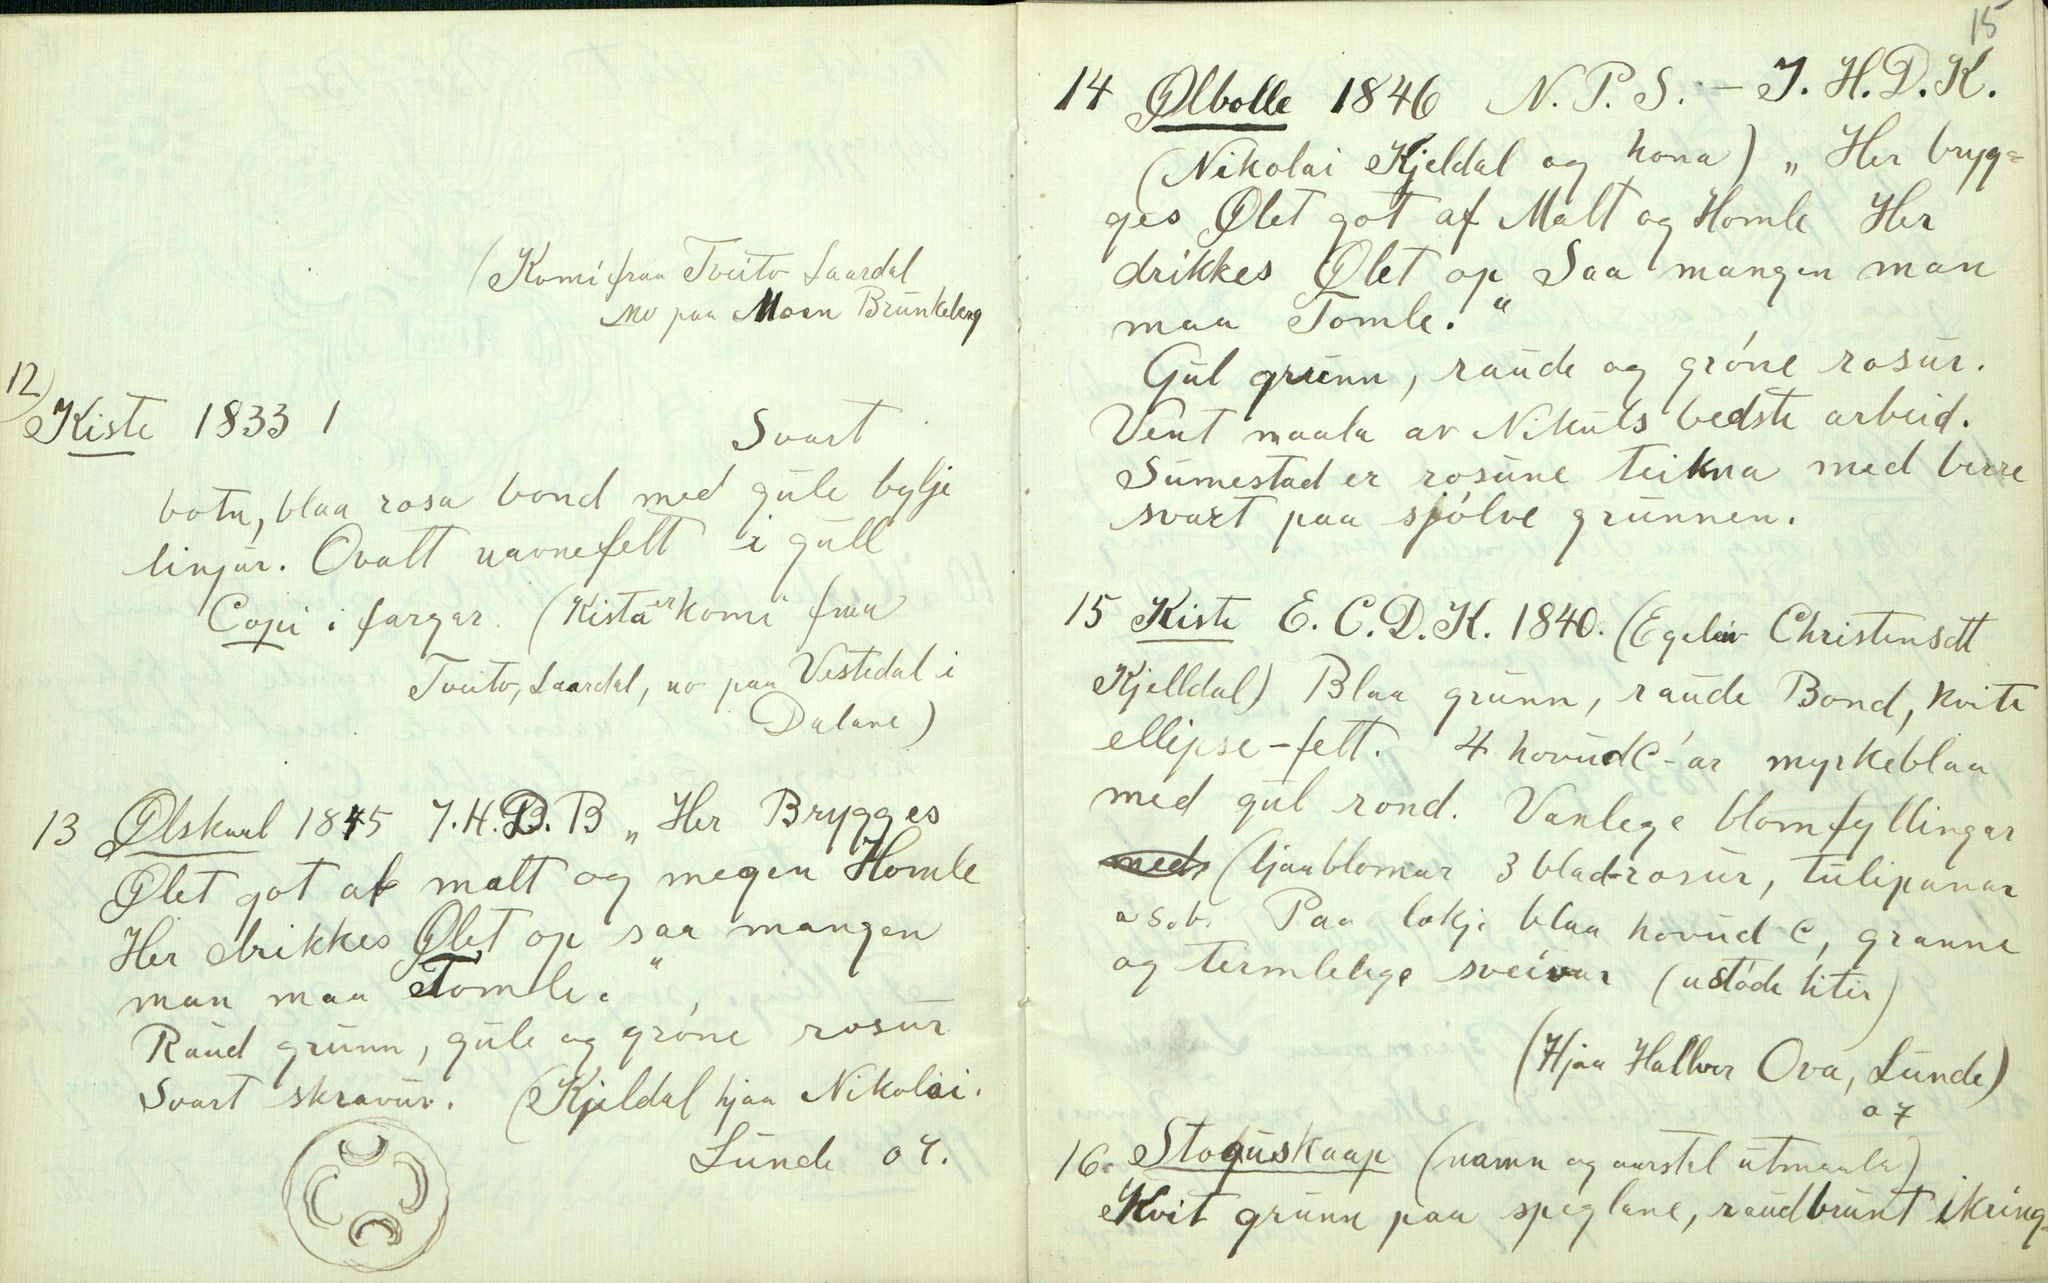 (Komi fraa Tveito Laardal
no paa Moen Brunkeberg
12)
Kiste 1833 1
Svart
botn, blaa rosa bond med gule bylje
linjur. Ovalt navnefelt i gull
Copi i fargar. (Kista er komi fraa
Tveito, Laardal, no paa Vestedal i
Dalane)
13 Ølskaal 1845 J.H.D.B „Her Brygges
Ølet got af malt og megen Homle
Her drikkes Ølet op saa mangen
man maa Tomle."
Raud grunn, gule og gróne rosur
Svart skravur. (Kjeldal hjaa Nikolai.
Lunde 07.
15
14 Ølbolle 1846 N.P.S. – J.H.D.K.
(Nikolai Kjeldal og kona) „Her bryg=
ges Ølet got af Malt og Homle Her
drikkes Ølet op Saa mangen man
maa Tomle."
Gul grunn, raude og gróne rosur.
Vent maala av Nikuls bedste arbeid.
Sumestad er rosune teikna med berre
svart paa sjólve grunnen.
15 Kiste E.C.D.K. 1840. (Egeleiv Christensdtt
Kjelldal) Blaa grunn, raude Bond, kvite
ellipse-felt. 4 hovudC-ar myrkeblaa
med gul rond. Vanlege blomfyllingar
med (ljaablomar 3 blad-rosur, tulipanar
o s.b. Paa lokje blaa hovud C, granne
og termlelege sveivar (ustóde liter)
(Hjaa Hallvor Ova, Lunde)
07
16. Stoguskaap (namn og aarstal utmaala)
Kvit grunn paa speglane, raudbrunt ikring-